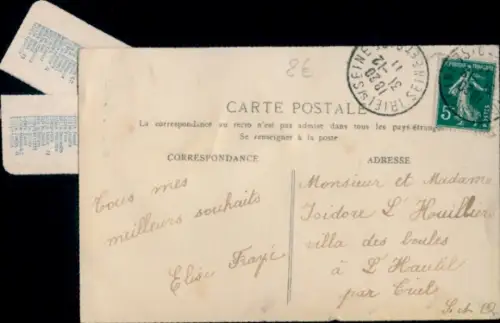 8€
TRIEL S/ SEINE
SEINE-ET-OISE
18 20
31 -12
11
CARTE POSTALE
La correspondance au recto n'est pas admise dans tous les pays étrangers
Se renseigner à la poste
CORRESPONDANCE
Tous mes
meilleurs souhaits
Elise
ADRESSE
Monsieur et Madame
Isidore L'Huillier
villa des boules
à L'Hautil
par Triel
S. et O
5
POSTES